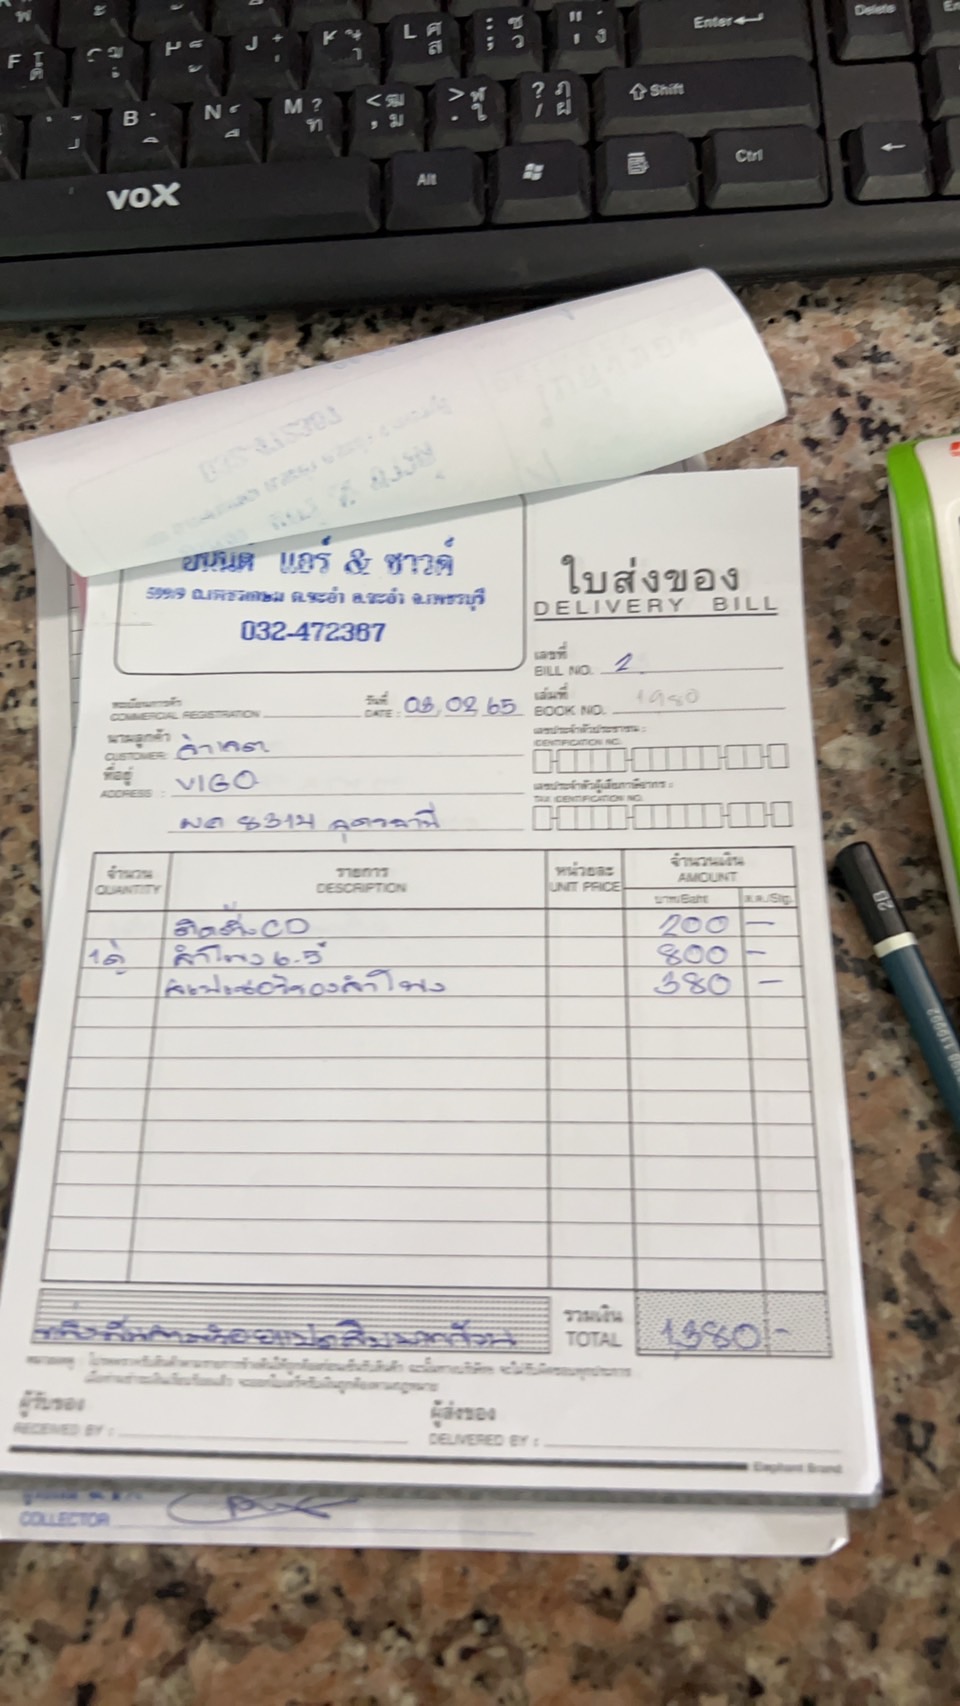 Enter
Delete
F
J
K
L
B
N
M
Shift
VOX
Alt
Ctrl
แอร์ & ซาวด์
599/9 ถ.เพชรเกษม ต.ชะอำ อ.ชะอำ จ.เพชรบุรี
032-472367
ใบส่งของ
DELIVERY BILL
เลขที่
BILL NO. 2
ทะเบียนการค้า
COMMERCIAL REGISTRATION
วันที่
DATE : 03, 02, 65
เล่มที่
BOOK NO. 1980
นามลูกค้า
CUSTOMER
เลขประจำตัวประชาชน :
IDENTIFICATION NO.
ที่อยู่
ADDRESS : VIGO
เลขประจำตัวผู้เสียภาษีอากร :
TAX IDENTIFICATION NO.
8314 อุดรธานี
จำนวน
QUANTITY
รายการ
DESCRIPTION
หน่วยละ
UNIT PRICE
จำนวนเงิน
AMOUNT
บาท/Baht
ส.ต./Stg.
ติดตั้ง CD 200 —
1 คู่ ลำโพง 6.5 800 —
สเปเซอร์รองลำโพง 380 —
หนึ่งพันสามร้อยแปดสิบบาทถ้วน
รวมเงิน
TOTAL 1,380 -
ผู้รับของ
RECEIVED BY :
ผู้ส่งของ
DELIVERED BY :
Elephant Brand
COLLECTOR
2B